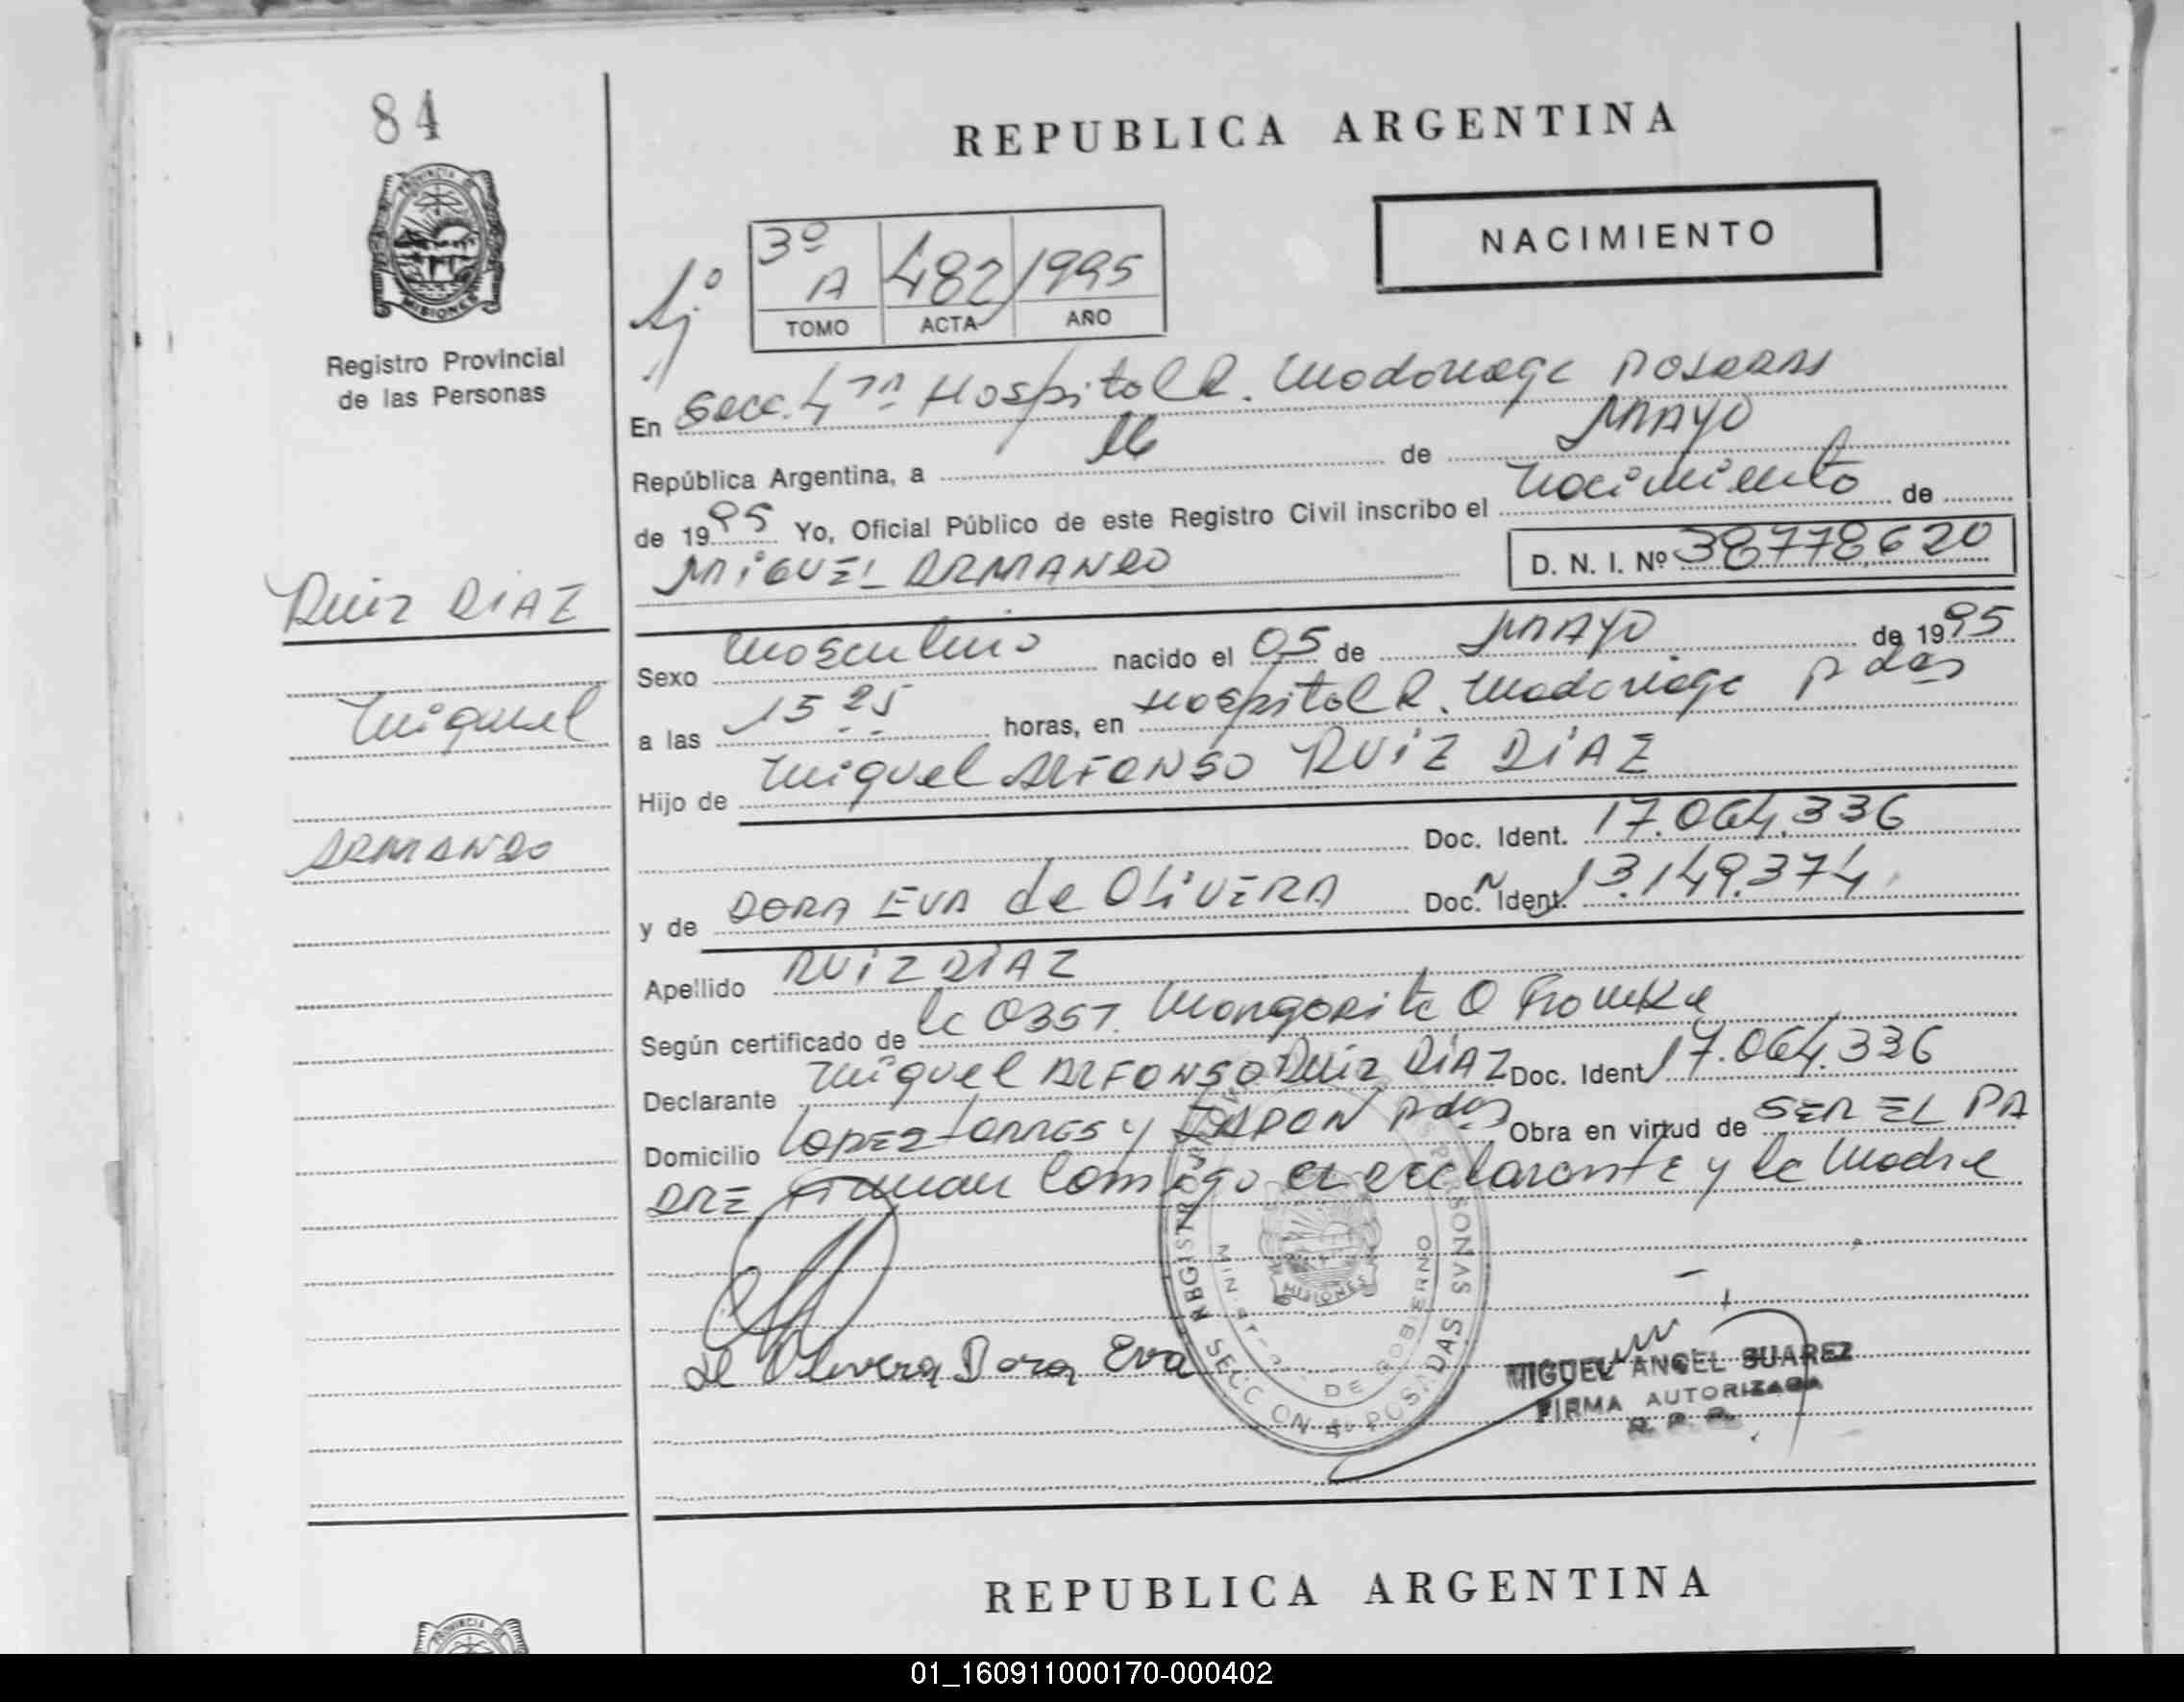 84
REPUBLICA ARGENTINA
NACIMIENTO
3º
A 482 1995
TOMO ACTA AÑO
PROVINCIA DE
MISIONES
Registro Provincial
de las Personas
En Secc. 4ta Hospital R. Madariaga POSADAS
República Argentina, a 16 de MAYO
de 1995 Yo, Oficial Público de este Registro Civil inscribo el Nacimiento de
MIGUEL ARMANDO D. N. I. Nº 38778,620
Ruiz DIAZ
Miguel
ARMANDO
Sexo Masculino nacido el 05 de MAYO de 1995
a las 15 25 horas, en Hospital R. Madariaga Pdas
Hijo de Miguel ALFONSO RUIZ DIAZ
Doc. Ident. 17.064.336
y de DORA EVA de OLIVERA Doc. Ident. 13.149.374
Apellido RUIZ DIAZ
Según certificado de la OBST. Margarita O
Declarante Miguel ALFONSO Ruiz DIAZ Doc. Ident 17.064.336
Domicilio LOPEZ TORRES y Pdas Obra en virtud de SER EL PA
DRE Firman Conmigo el declarante y la Madre
de Olivera Dora Eva
MISIONES
DE GOBIERNO
POSADAS
MIGUEL ANGEL SUAREZ
FIRMA AUTORIZADA
R. P. P.
REPUBLICA ARGENTINA
01_160911000170-000402